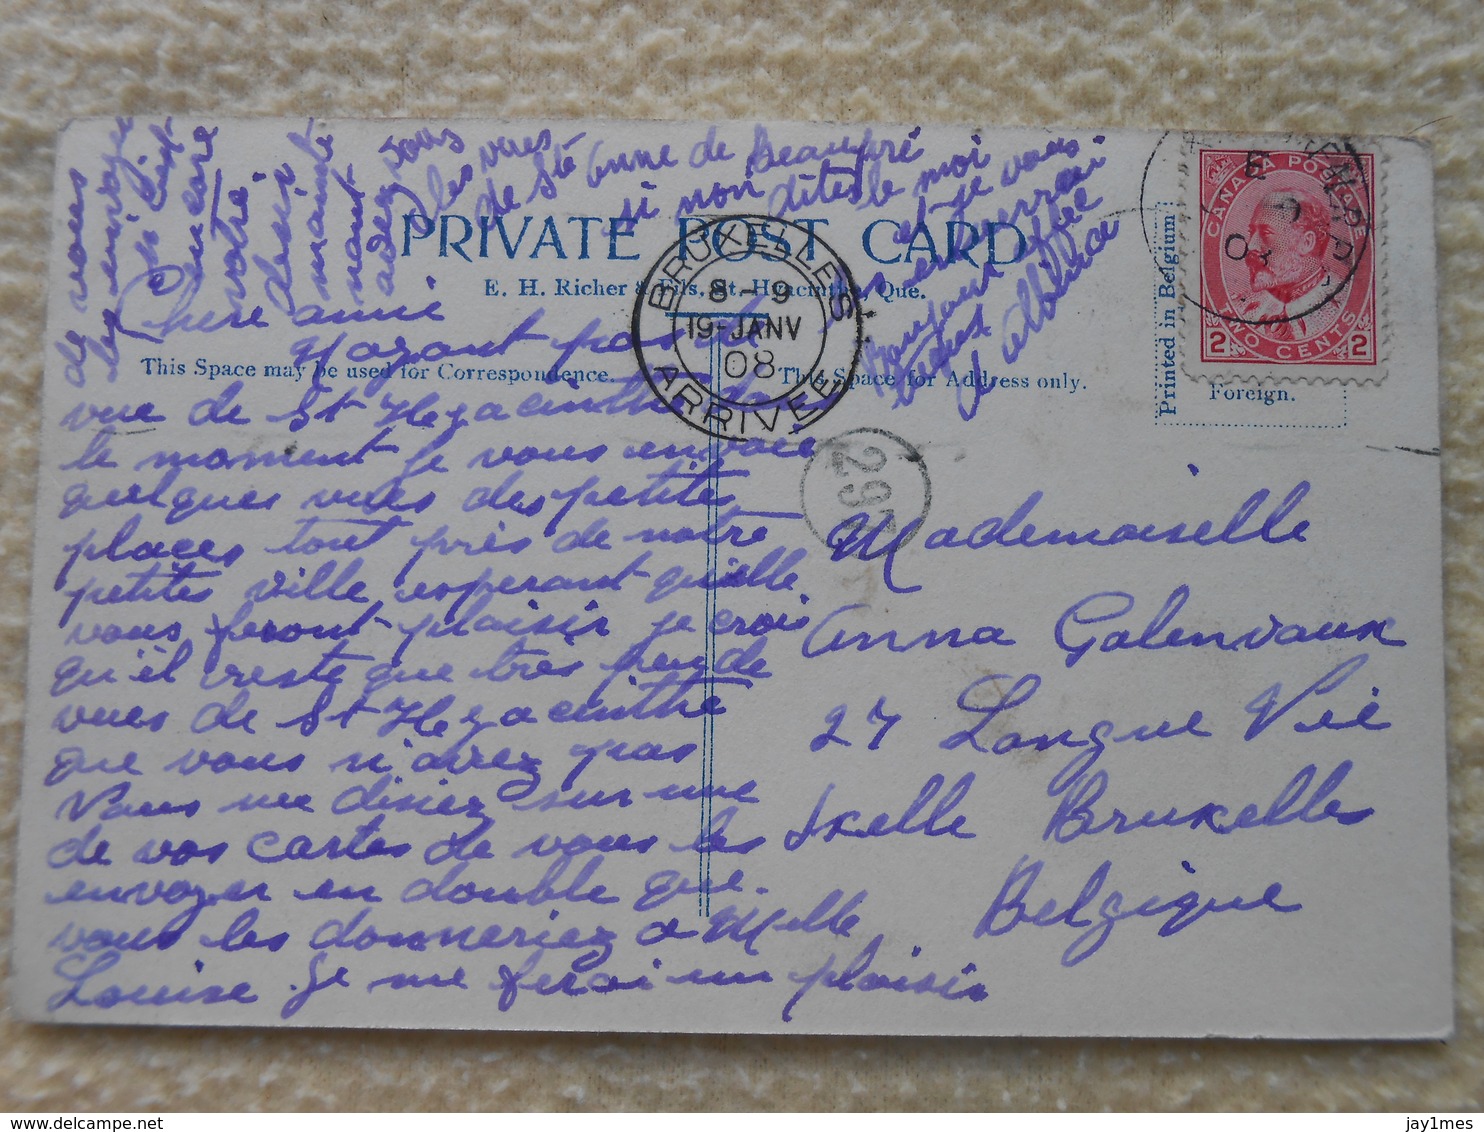 PRIVATE POST CARD
E. H. Richer & Fils, St. Hyacinthe, Que.
This Space may be used for Correspondence.
This Space for Address only.
Printed in Belgium
Foreign.
CANADA POSTAGE
2 TWO CENTS 2
BRUXELLES
8 - 9
19-JANV
08
ARRIVEE
297
08
Chère amie
N'ayant pas de
vue de St Hyacinthe dans
le moment je vous envoie
quelques vues des petites
places tout près de notre
petites ville esperant qu'elle
vous feront plaisir je crois
qu'il reste que très peu de
vues de St Hyacinthe
que vous n'avez pas
Vous me disiez sur une
de vos cartes de vous les
envoyer en double que
vous les donneriez a Mlle
Louise je me ferai un plaisir
de vous
les envoyer
si c'est
encore
votre
désir
mainte
nant
avez vous
les vues
de Ste Anne de Beaupré
si non dites le moi
et je vous
en enverrai
Mademoiselle
Anna Galenvaux
27 Longue Vie
Ixelle Bruxelles
Belgique
jay1mes